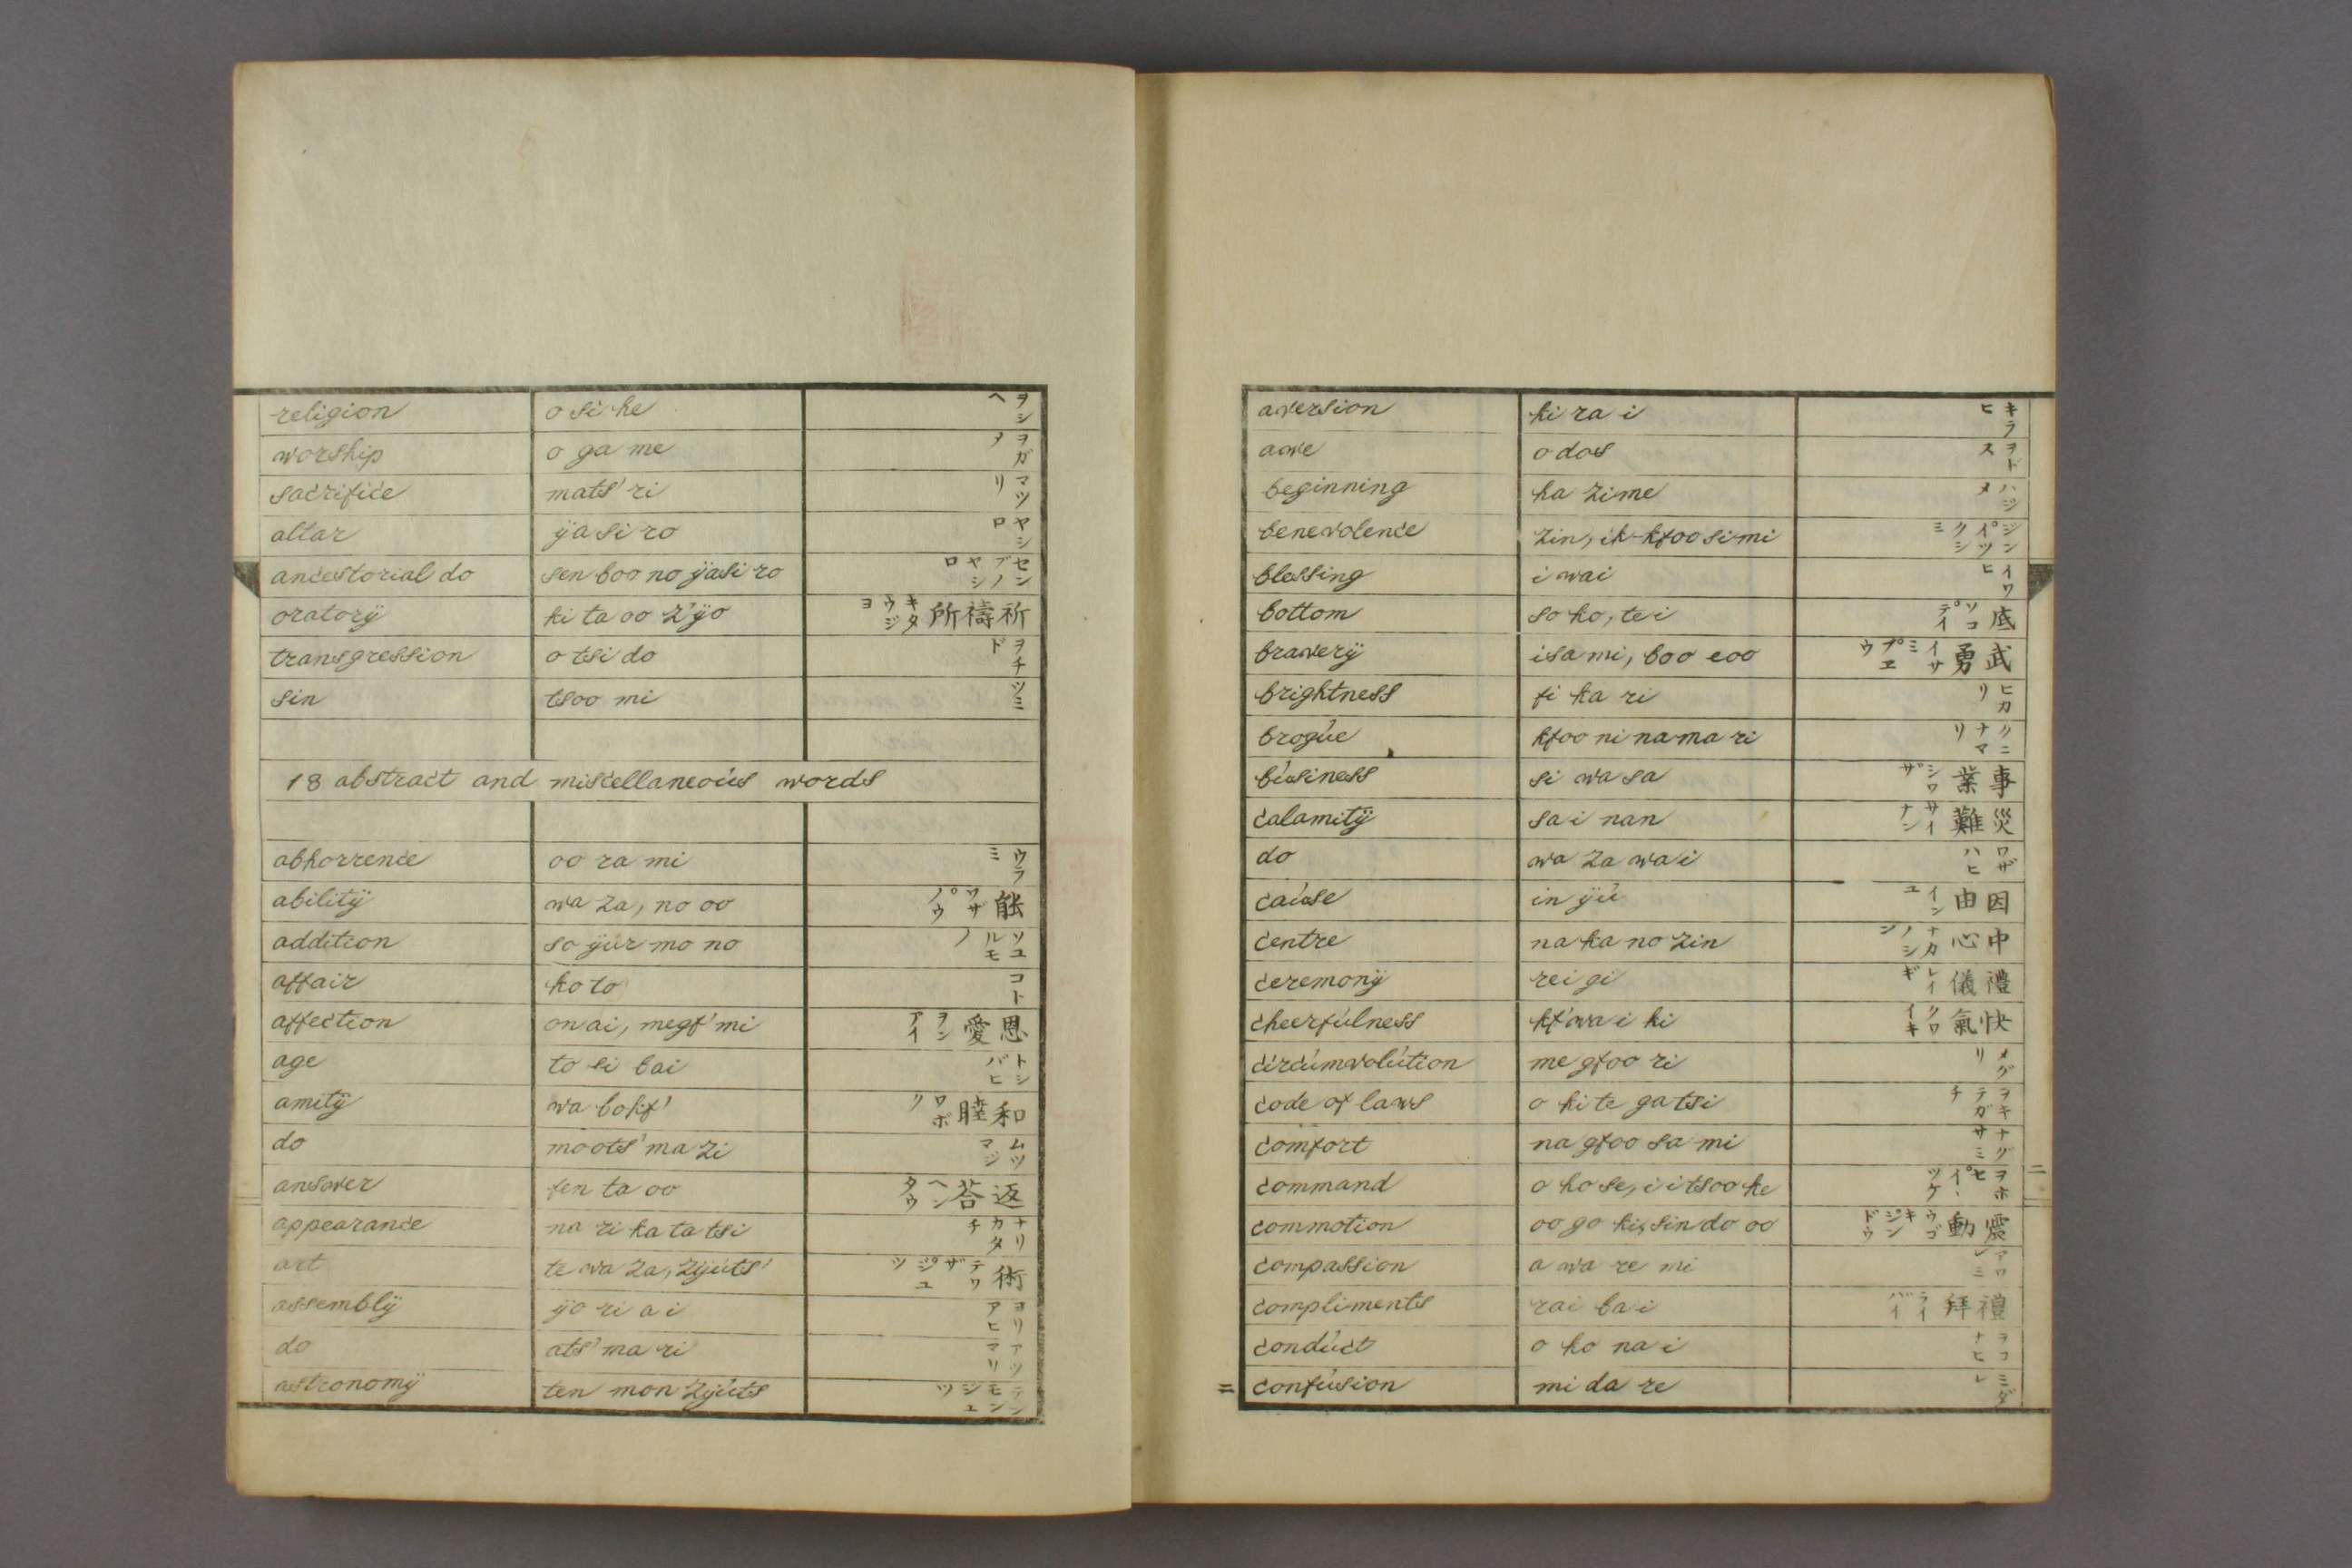 religion o si he ヲシヘ
worship o ga me ヲガメ
sacrifice mats' ri マツリ
altar ÿa si ro ヤシロ
ancestorial do sen boo no ÿasi ro センブノヤシロ
oratorÿ ki ta oo z'ÿo 祈禱所 キタウジヨ
transgression o tsi do ヲチド
sin tsoo mi ツミ
18 abstract and miscellaneoús words
abhorrence oo ra mi ウラミ
abilitÿ wa za, no oo 能 ワザ ノウ
addition so ÿúr mo no ソユルモノ
affair ko to コト
affection on ai, megf' mi 恩愛 ヲンアイ
age to si bai トシバヒ
amitÿ wa bokf' 和睦 ワボク
do moots' ma zi ムツマジ
answer fen ta oo 返荅 ヘンタウ
appearance na ri ka ta tsi ナリカタチ
art te wa za, zÿúts' 術 テワザ ジユツ
assemblÿ ÿo ri a i ヨリアヒ
do ats' ma ri アツマリ
astronomÿ ten mon zÿúts テンモンジユツ
aversion ki ra i キラヒ
awe o dos ヲドス
beginning ha zi me ハジメ
benevolence zin, its kfoo si mi ジン イツクシミ
blessing i wai イワヒ
bottom so ko, te i 底 ソコ テイ
braverÿ isa mi, boo eoo 武勇 イサミ ブヱウ
brightness fi ka ri ヒカリ
brogúe kfoo ni na ma ri クニナマリ
búsiness si wa sa 事業 シワザ
calamitÿ sa i nan 災難 サイナン
do wa za wa i ワザハヒ
caúse in ÿú 因由 インユ
centre na ka no zin 中心 ナカノシジ
ceremonÿ rei gi 禮儀 レイギ
cheerfúlness kf'wa i ki 快氣 クワイキ
circúmvolútion me gfoo ri メグリ
code of laws o ki te ga tsi ヲキテガチ
comfort na gfoo sa mi ナグサミ
command o ho se, i i tsoo ke ヲホセ イヽツケ
commotion oo go ki, sin do oo 震動 ウゴキ シンドウ
compassion a wa re mi アワレミ
compliments rai ba i 禮拜 ライバイ
condúct o ko na i ヲコナヒ
confúsion mi da re ミダレ
二